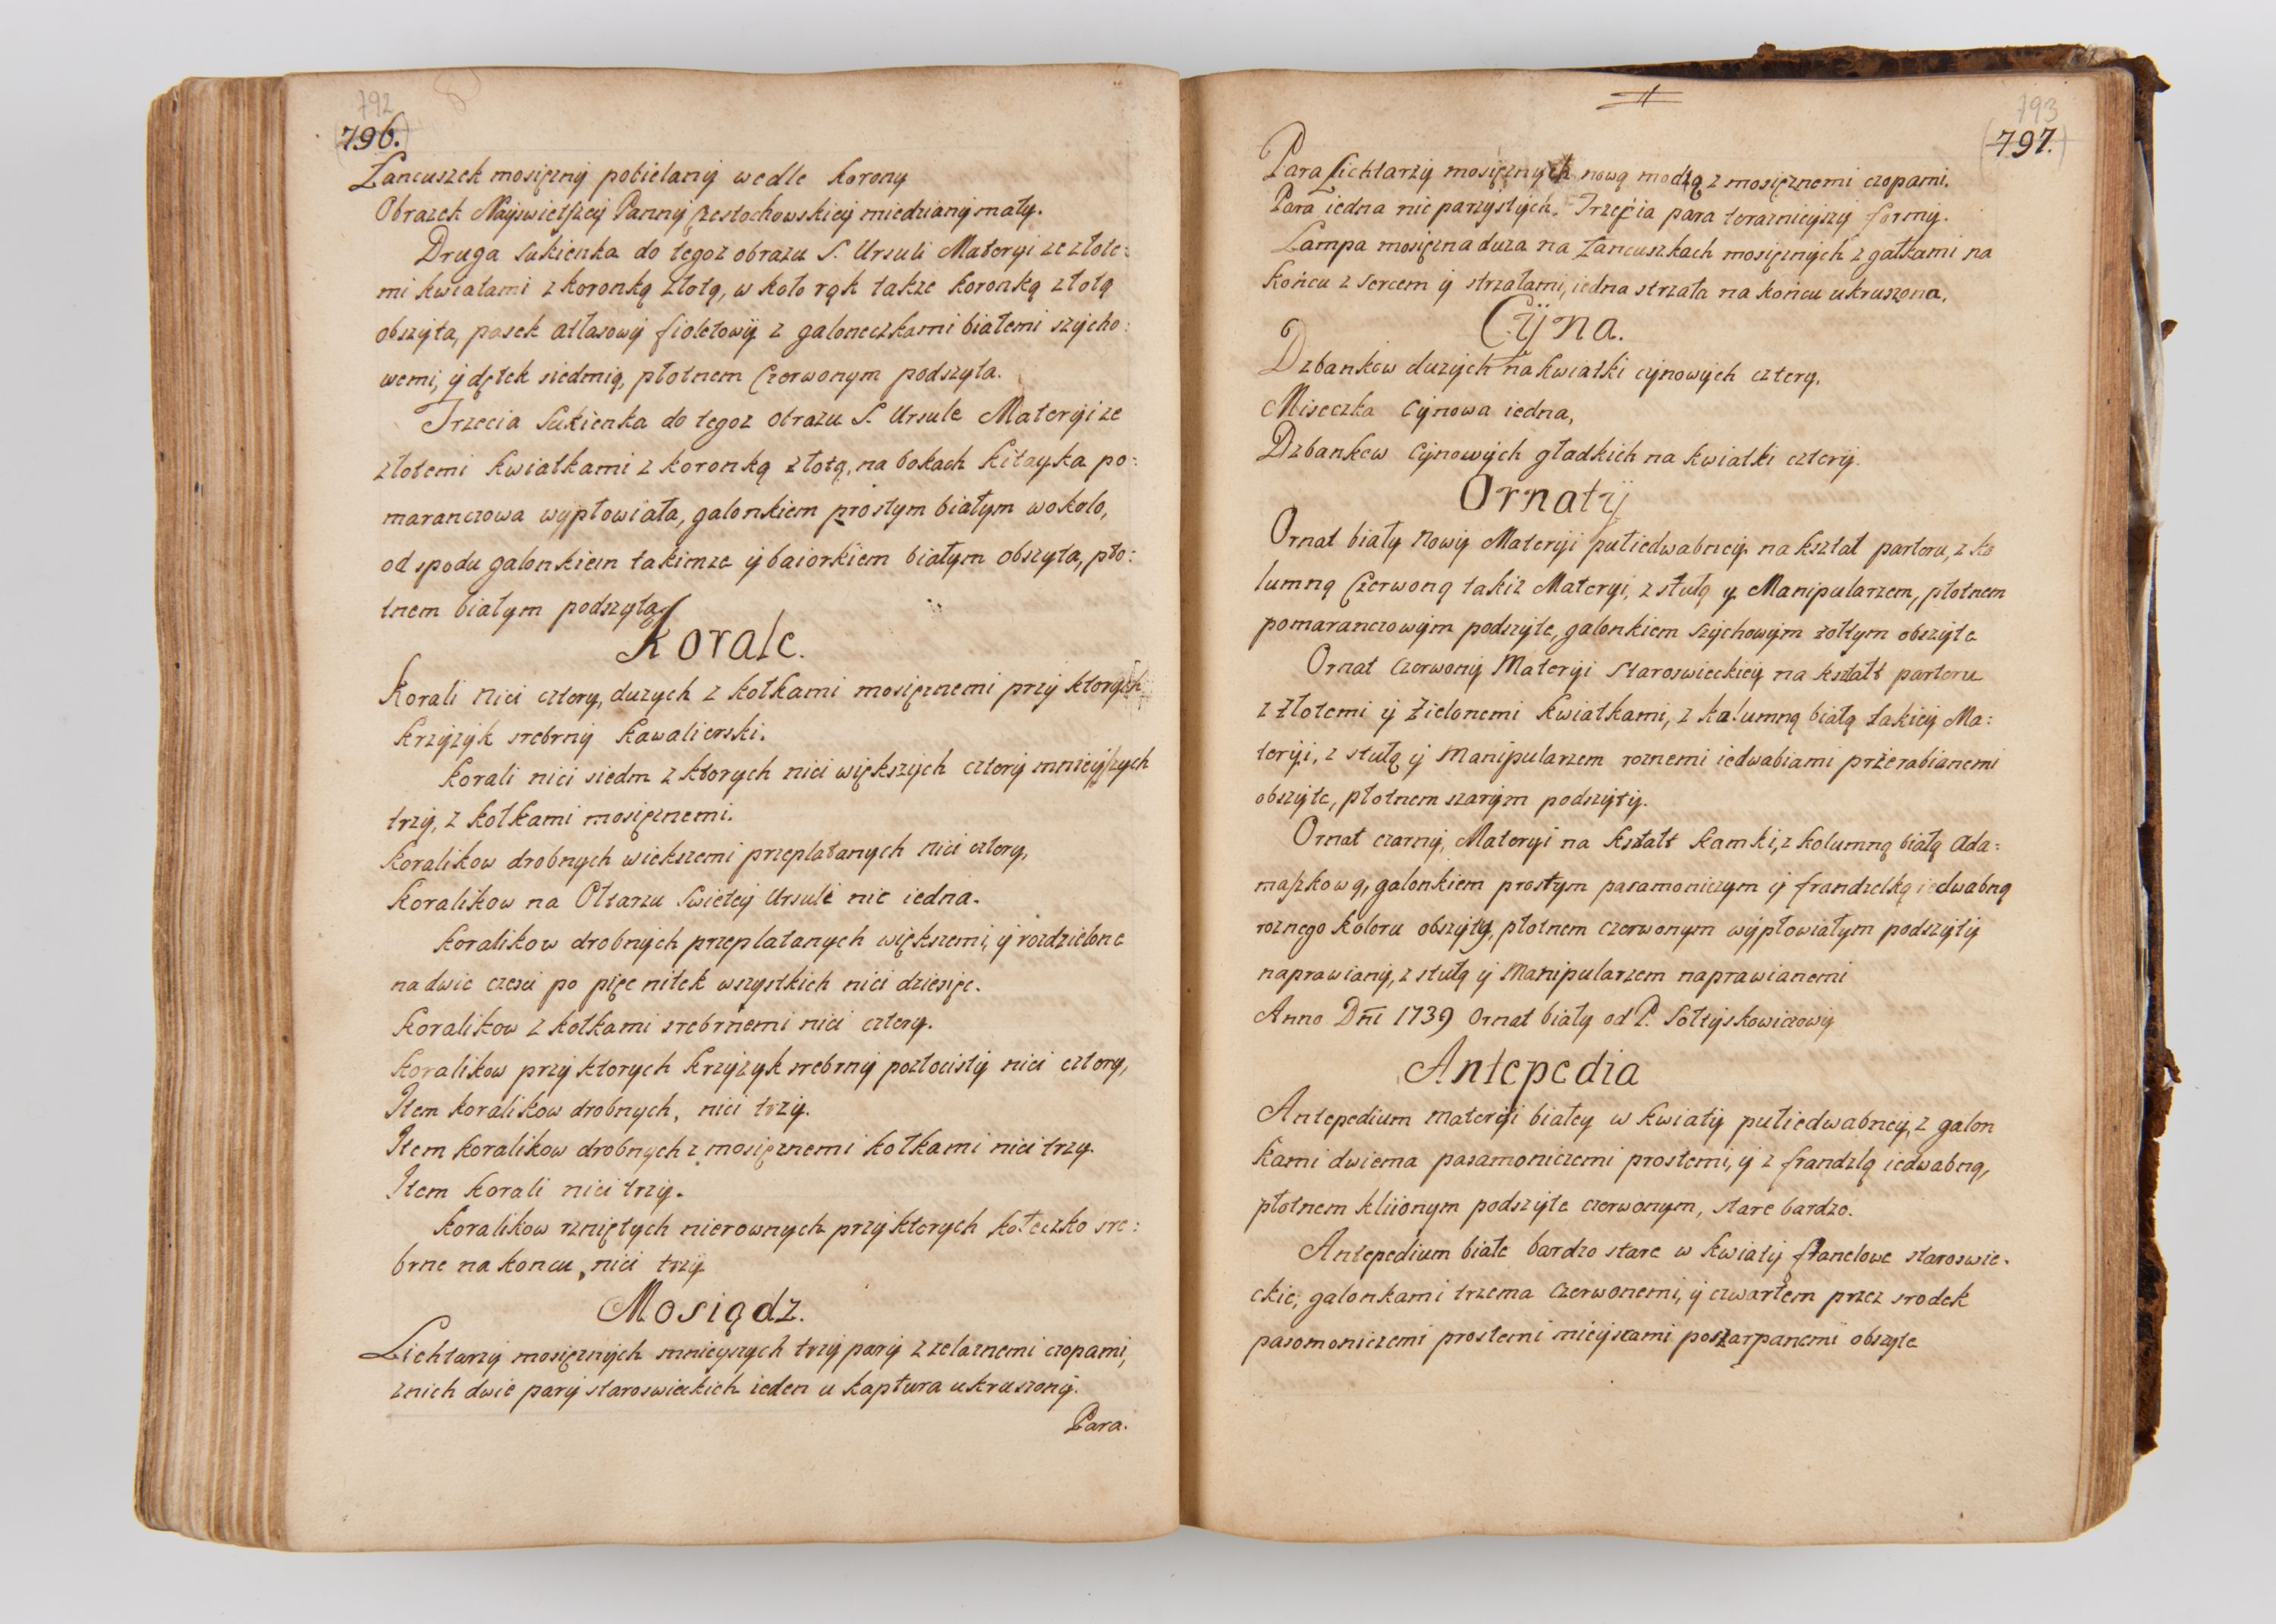 792
796.
Łancuszek mosięzny pobielany wedle korony
Obrazek Nayswietszey Panny Częstochowskiey miedziany mały.
Druga sukienka do tegoz obrazu S. Ursuli Materyi ze złote:
mi kwiatami z koronką złotą, w koło rąk takze koronką złotą
obszyta, pasek atłasowy fioletowy z galoneczkami białemi szycho:
wemi, y dętek siedmią, płotnem Czerwonym podszyta.
Trzecia Sukienka do tegoz Obrazu S. Ursule Materyi ze
złotemi kwiatkami z koronką złotą, na bokach kitayka po:
maranczowa wypłowiała, galonkiem prostym białym wokolo,
od spodu galonkiem takimze y baiorkiem białym obszyta, pło:
tnem białym podszyta
Korale.
Korali nici cztery, duzych z kołkami mosięznemi przy ktorych
krzyzyk srebrny kawalierski.
Korali nici siedm z ktorych nici większych cztery mnieyszych
trzy, z kołkami mosięznemi.
Koralikow drobnych wiekszemi przeplatanych nici cztery,
Koralikow na Ołtarzu Swietey Ursule nic iedna.
Koralikow drobnych przeplatanych większemi, y rozdzielone
na dwie czesci po pięc nitek wszystkich nici dziesięc.
Koralikow z kołkami srebrnemi nici cztery.
Koralikow przy ktorych krzyzyk srebrny pozłocisty nici cztery,
Item koralikow drobnych, nici trzy.
Item koralikow drobnych z mosięznemi kołkami nici trzy.
Item korali nici trzy.
Koralikow rzniętych nierownych przy ktorych kołeczko sre:
brne na koncu, nici trzy
Mosiądz.
Lichtarzy mosięznych mnieyszych trzy pary z zelaznemi czopami,
z nich dwie pary staroswieckich ieden u kaptura ukruszony.
Para.
793
797.
Para Lichtarzy mosięznych nową modzą z mosięznemi czopami.
Para iedna nie parzystych. Trzecia para terazniejszy formy.
Lampa mosięzna duza na Łancuszkach mosięznych z gałkami na
końcu z sercem y strzałami, iedna strzała na końcu ukruszona,
Cyna.
Dzbankow duzych na kwiatki cynowych cztery.
Miseczka Cynowa iedna,
Dzbankow Cynowych gładkich na kwiatki cztery.
Ornaty
Ornat biały Nowy Materyi pułiedwabney na kształ parteru, z ko
lumną Czerwoną takiz Materyi, z stułą y Manipularzem, płotnem
pomaranczowym podszyte, galonkiem szychowym zołtym obszyte
Ornat czerwony Materyi Staroswieckiey na kształt parteru
z złotemi y zielonemi kwiatkami, z kalumną białą takiey Ma:
teryi, z stułą y Manipularzem roznemi iedwabiami przerabianemi
obszyte, płotnem szarym podszyty.
Ornat czarny, Materyi na kształt kamki, z kolumną białą Ada:
maszkową, galonkiem prostym pasamoniczym y frandzelką iedwabną
roznego koloru obszyty, płotnem czerwonym wypłowiałym podszyty
naprawiany, z stułą y Manipularzem naprawianemi
Anno Dñi 1739 Ornat biały od P. Sołtyskowiczowy
Antepedia
Antepedium materyi białey w kwiaty pułiedwabney, z galon
kami dwiema pasamoniczemi prostemi, y z frandzlą iedwabną,
płotnem kliionym podszyte czerwonym, stare bardzo.
Antepedium białe bardzo stare w kwiaty flanelowe staroswie.
ckie, galonkami trzema Czerwonemi, y czwartem przez srodek
pasomoniczemi prostemi mieyscami poszarpanemi obszyte